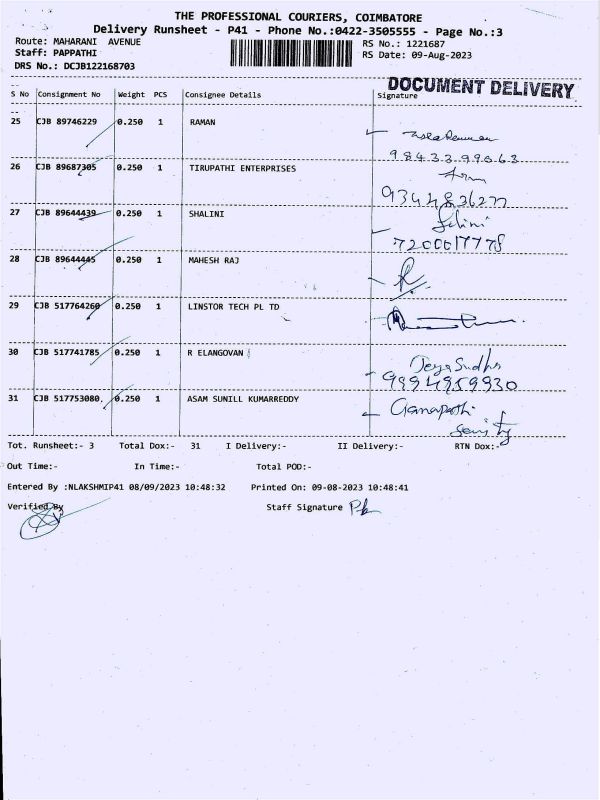 THE PROFESSIONAL COURIERS, COIMBATORE
Delivery Runsheet - P41 - Phone No.:0422-3505555 - Page No.:3
Route: MAHARANI AVENUE RS No.: 1221687
Staff: PAPPATHI RS Date: 09-Aug-2023
DRS No.: DCJB122168703
DOCUMENT DELIVERY
S No Consignment No Weight PCS Consignee Details Signature
25 CJB 89746229 0.250 1 RAMAN
26 CJB 89687305 0.250 1 TIRUPATHI ENTERPRISES
9344836277
27 CJB 89644439 0.250 1 SHALINI
28 CJB 89644445 0.250 1 MAHESH RAJ
29 CJB 517764260 0.250 1 LINSTOR TECH PL TD
30 CJB 517741785 0.250 1 R ELANGOVAN
9994959930
31 CJB 517753080 0.250 1 ASAM SUNILL KUMARREDDY
Tot. Runsheet:- 3 Total Dox:- 31 I Delivery:- II Delivery:- RTN Dox:-
Out Time:- In Time:- Total POD:-
Entered By :NLAKSHMIP41 08/09/2023 10:48:32 Printed On: 09-08-2023 10:48:41
Verified By Staff Signature